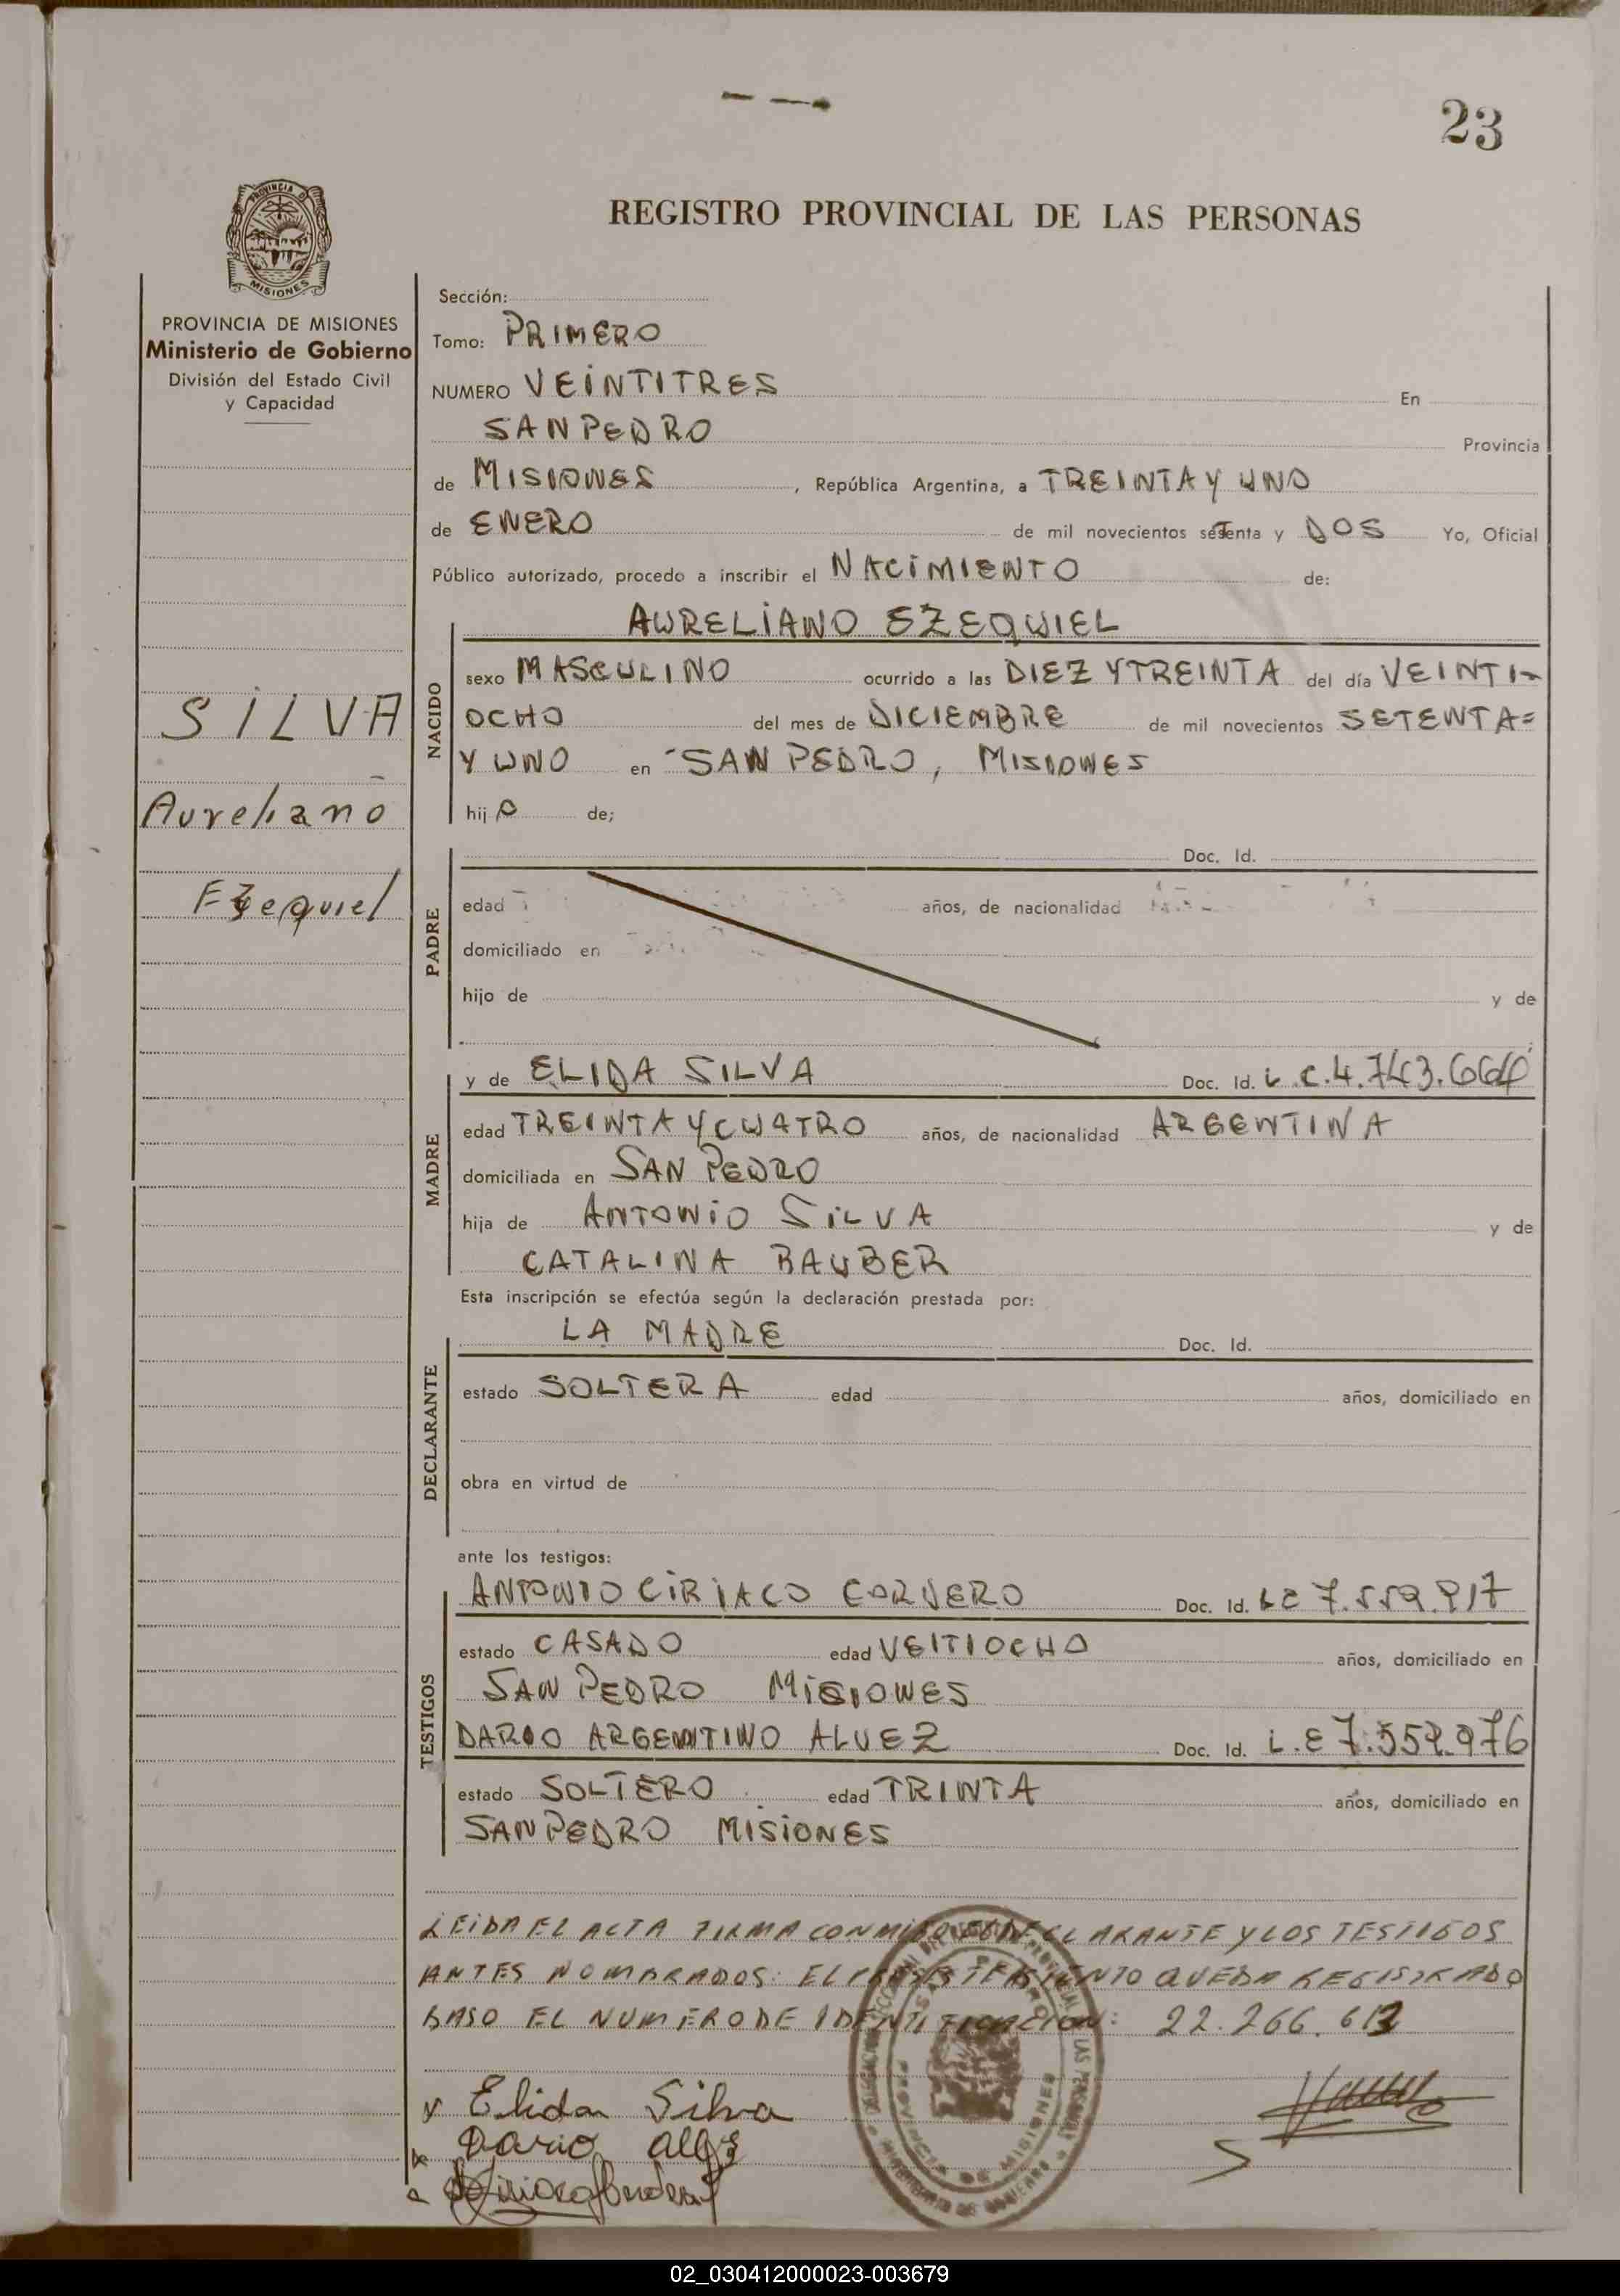 23
REGISTRO PROVINCIAL DE LAS PERSONAS
PROVINCIA DE MISIONES
Ministerio de Gobierno
División del Estado Civil
y Capacidad
SILVA
Aureliano
Ezequiel
Sección:
Tomo: PRIMERO
NUMERO VEINTITRES En
SAN PEDRO Provincia
de MISIONES, República Argentina, a TREINTA Y UNO
de ENERO de mil novecientos setenta y DOS Yo, Oficial
Público autorizado, procedo a inscribir el NACIMIENTO de:
NACIDO
AURELIANO EZEQUIEL
sexo MASCULINO ocurrido a las DIEZ Y TREINTA del día VEINTI-
OCHO del mes de DICIEMBRE de mil novecientos SETENTA=
Y UNO en SAN PEDRO, MISIONES
hijo de;
PADRE
Doc. Id.
edad años, de nacionalidad
domiciliado en
hijo de y de
MADRE
y de ELIDA SILVA Doc. Id. L.C. 4.743.664
edad TREINTA Y CUATRO años, de nacionalidad ARGENTINA
domiciliada en SAN PEDRO
hija de ANTONIO SILVA y de
CATALINA BAUBER
Esta inscripción se efectúa según la declaración prestada por:
DECLARANTE
LA MADRE Doc. Id.
estado SOLTERA edad años, domiciliado en
obra en virtud de
ante los testigos:
TESTIGOS
ANTONIO CIRIACO CORDERO Doc. Id. LE
estado CASADO edad VEITIOCHO años, domiciliado en
SAN PEDRO MISIONES
DARIO ARGENTINO ALVEZ Doc. Id. L.E 7.559.976
estado SOLTERO edad TRINTA años, domiciliado en
SAN PEDRO MISIONES
LEIDA EL ACTA FIRMA CONMIGO DECLARANTE Y LOS TESTIGOS
ANTES NOMBRADOS: EL QUEDA REGISTRADO
BAJO EL NUMERO DE IDENTIFICACION: 22.266.613
x Elida Silva
Dario
PROVINCIA DE MISIONES
02_030412000023-003679